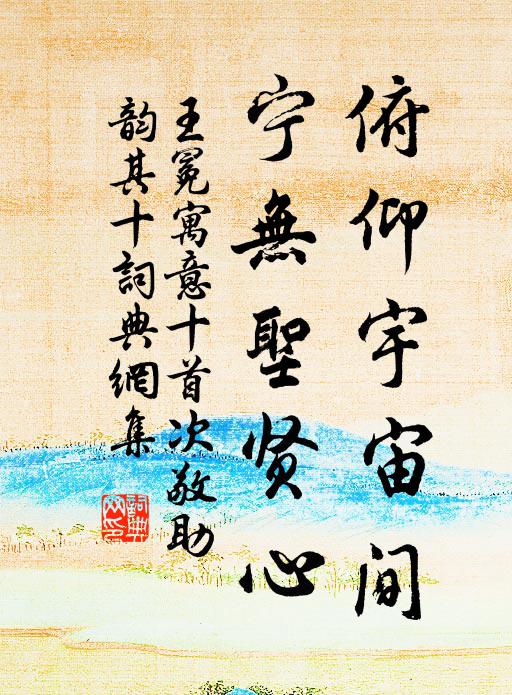 俯仰宇宙间
宁無聖贤心
王冕寓意十首次敬助
韵其十詞典網集
詞典网印